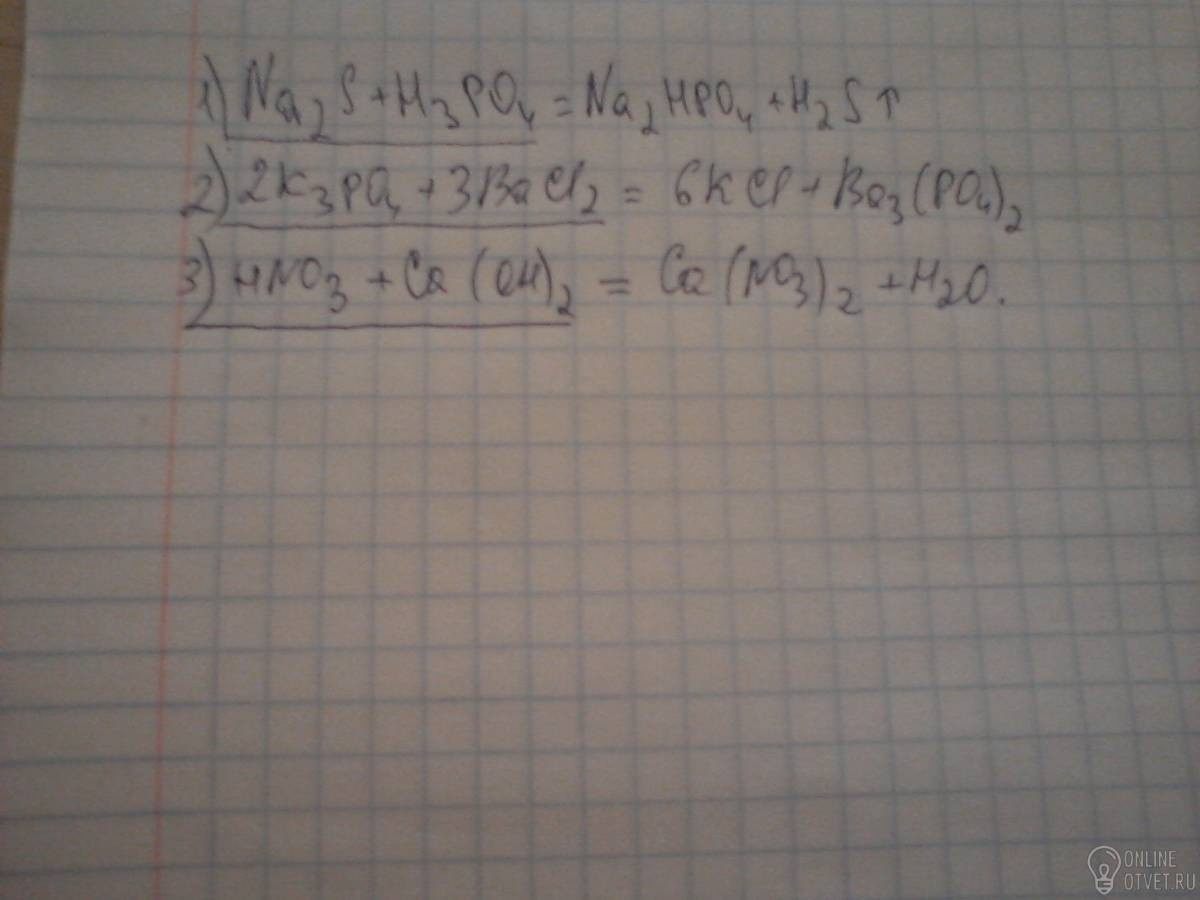 1) Na₂S + H₃PO₄ = Na₂HPO₄ + H₂S↑
2) 2K₃PO₄ + 3BaCl₂ = 6KCl + Ba₃(PO₄)₂
3) HNO₃ + Ca(OH)₂ = Ca(NO₃)₂ + H₂O.
ONLINE
OTVET.RU